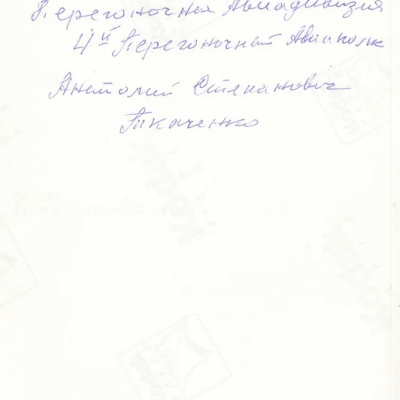 Перегоночная Авиадивизия
4й Перегоночный Авиаполк
Анатолий Степановіч
Ткаченко